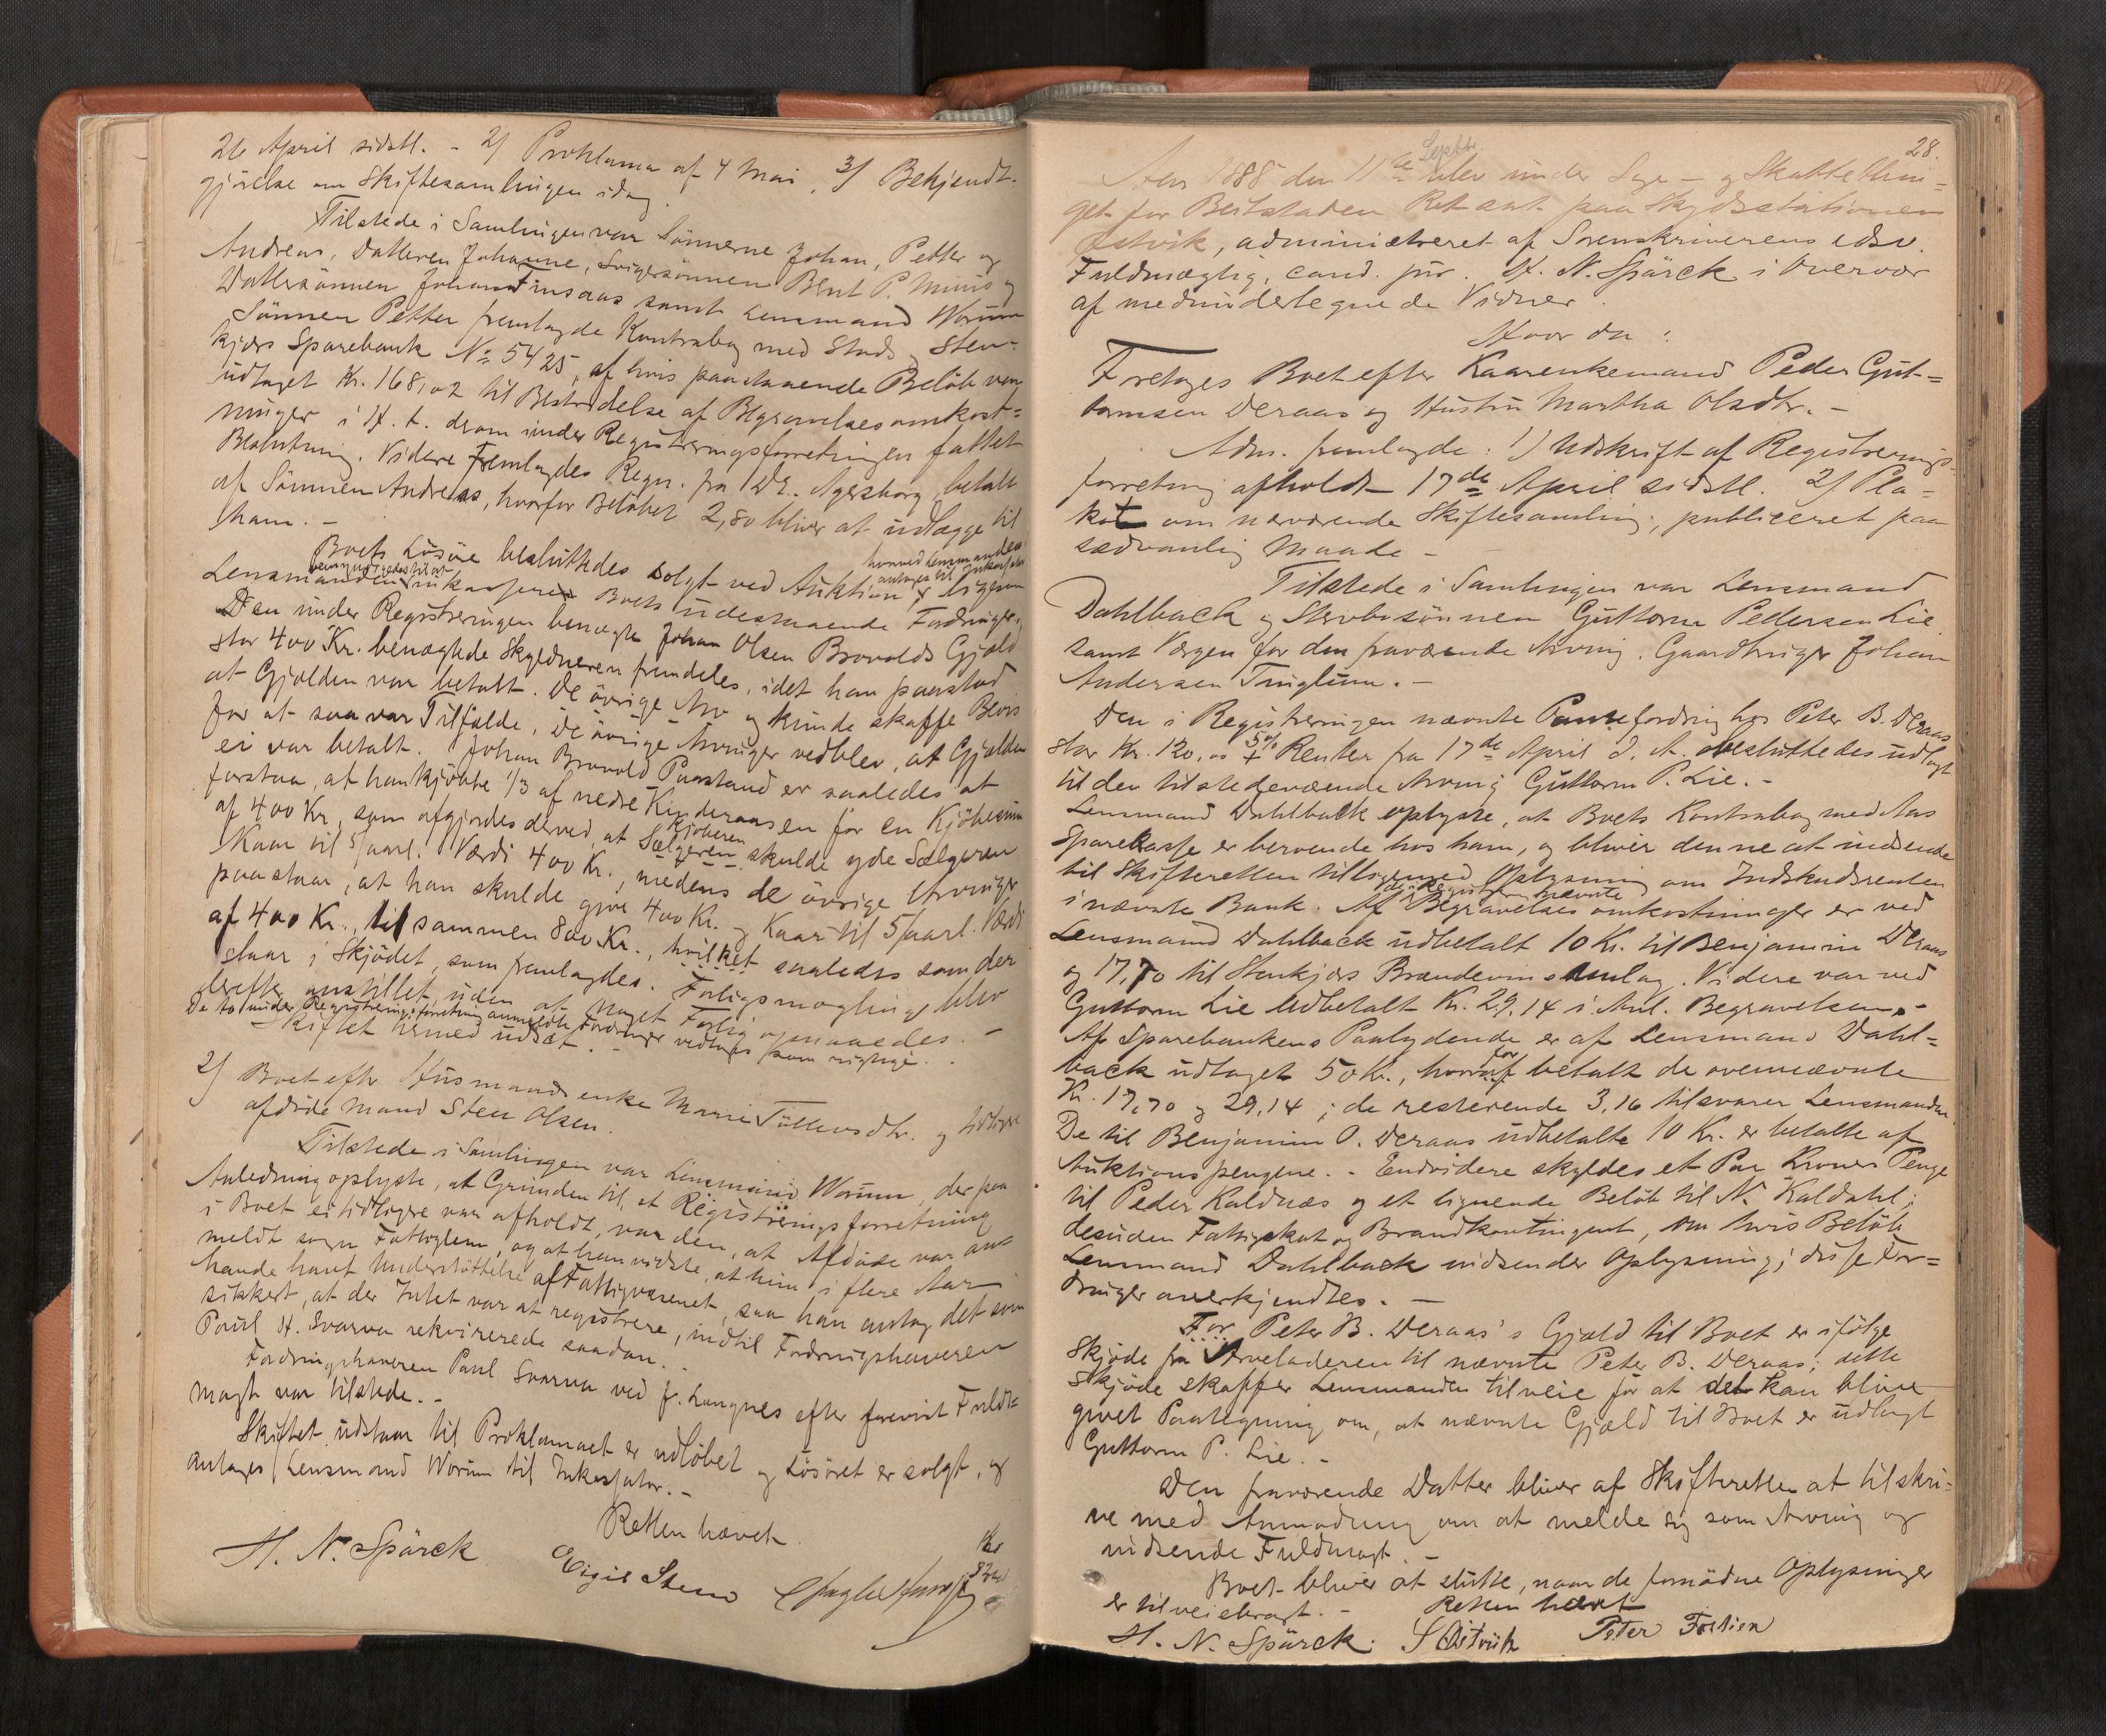 26 April sidstl. - 2/ Proklama af 4 Mai, 3/ Bekjendt-
gjörelse om Skiftesamlingen idag.
Tilstede i Samlingen var Sönnerne Johan, Petter og
Andreas, Datteren Johanne, Svigersönnen Bent P. Minis og
Dattersönnen Johan Finsaas samt Lensmand Worum
Sönnen Petter fremlagde Kontrabog med Stods og Sten-
kjærs Sparebank No 5425, af hvis paastaaende Belöb var
udtaget Kr. 168,02 til Bestridelse af Begravelsesomkost=
ninger i H. t. derom under Registreringsforretningen fattet
Beslutning. Videre fremlagdes Regn. fra Dr. Agersborg, betalt
af Sönnen Andreas, hvorfor Belöbet 2,80 bliver at udlægge til
ham. -
Boets Lösöre besluttedes solgt ved Auktion, hvorved Lensmanden antages til Inkassator, ligesom
Lensmanden bemyndigedes til at inkassere Boets udestaaende Fordringer.
Den under Registreringen benægte Johan Olsen Brovolds Gjæld
stor 400 Kr. benægtede Skyldneren fremdeles, idet han paastod
at Gjælden var betalt. De övrige Arv og kunde skaffe Bevis
for at saa var Tilfælde, De övrige Arvinger vedblev, at Gjælden
ei var betalt. Johan Brovold Paastand er saaledes at
forstaa, at han kjöbte 1/3 af nedre Kinderaasen for en Kjöbesum
af 400 Kr, som afgjordes derved, at Sælgeren Kjöberen skulde yde Sælgeren
Kaar til 5/aarl. Værdi 400 Kr., medens de övrige Arvinger
paastaar, at han skulde give 400 Kr. og Kaar til 5/aarl. Værdi
af 400 Kr., tilsammen 800 Kr., hvilket saaledes som der
staar i Skjödet, som fremlagdes. Forligsmægling blev
derefter anstillet, uden at noget Forlig opnaaedes. -
De to under Registreringsforretning anmeldte Fordringer vedtages som rigtige.
Skiftet hermed udsat. -
2/ Boet efter Husmandsenke Marie Tollevsdtr. og tidligere
afdöde Mand Sten Olsen.
Tilstede i Samlingen var Lensmand Worum, der paa
Anledning oplyste, at Grunden til, at Registreringsforretning
i Boet ei tidligere var afholdt, var den, at Afdöde var an=
meldt som Fattiglem, og at han vidste, at hun i flere Aar
havde havt Understöttelse af Fattigvæsenet, saa han antog det som
sikkert, at der Intet var at registrere, indtil Fordringshaveren
Paul H. Svarva rekvirerede saadan. -
Fordringshaveren Paul Svarva ved J. Langnes efter forevist Fuld=
magt var tilstede. -
Skiftet udstaar til Proklamaet er udlöbet og Lösöret er solgt, og
antages Lensmand Worum til Inkassator. -
Retten hævet
H. N. Spärck Eigil Steen
28.
Aar 1888 den 11te Septbr. blev under Sage- og Skattethin=
get for Beitstaden Ret sat paa Skydsstationen
Östvik, administreret af Sorenskriverens edsv.
Fuldmægtig, cand. jur. H. N. Spärck i Overvær
af medundertegnede Vidner.
Hvor da:
Foretages Boet efter Kaarenkemand Peder Gut=
tormsen Deraas og Hustru Martha Olsdtr. -
Adm. fremlagde: 1) Udskrift af Registrerings-
forretning afholdt 17de April sidstl. 2/ Pla=
kat om nærværende Skiftesamling, publiceret paa
sædvanlig Maade -
Tilstede i Samlingen var Lensmand
Dahlback og Stervbosönnen Guttorm Pedersen Lie
samt Værgen for den fraværende Arving, Gaardbruger Johan
Andersen Tinglum. -
Den i Registreringen nævnte Pantefordring hos Peter B. Deraas
stor Kr. 120,00 + 5% Renter fra 17de April d. A. besluttedes udlagt
til den tilstedeværende Arving Guttorm P. Lie. -
Lensmand Dahlback oplyste, at Boets Kontrabog med Aas
Sparekasse er beroende hos ham, og bliver denne at indsende
til Skifteretten tilligemed Oplysning om Indskudsrenten
i nævnte Bank. Af de i Registr. nævnte Begravelsesomkostninger er ved
Lensmand Dahlback udbetalt 10 Kr. til Benjamin Deraas
og 17,70 til Stenkjærs Brændevinssamlag. Videre var ved
Guttorm Lie udbetalt Kr. 29,14 i Anl. Begravelsen. -
Af Sparebankens Paalydende er af Lensmand Dahl=
back udtaget 50 Kr., hvorfor betalt de ovennævnte
Kr. 17,70 og 29,14; de resterende 3,16 tilsvarer Lensmanden
De til Benjamin O. Deraas udbetalte 10 Kr. er betalte af
Auktionspengene. - Endvidere skyldes et Par Kroner Penge
til Peder Kaldnæs og et lignende Belöb til N. Kaldahl;
desuden Fattigskat og Brandkontingent, om hvis Belöb
Lensmand Dahlback indsender Oplysning; disse For=
dringer anerkjendtes. -
For Peter B. Deraas's Gjæld til Boet er ifölge
Skjöde fra Arveladeren til nævnte Peter B. Deraas; dette
Skjöde skaffer Lensmanden tilveie for at det kan blive
givet Paategning om, at nævnte Gjæld til Boet er udlagt
Guttorm P. Lie. -
Den fraværende Datter bliver af Skifteretten at tilskri=
ve med Anmodning om at melde sig som Arving og
indsende Fuldmagt. -
Boet bliver at slutte, naar de fornödne Oplysninger
er tilveiebragt. - Retten hævet
H. N. Spärck. S Östvik Peter